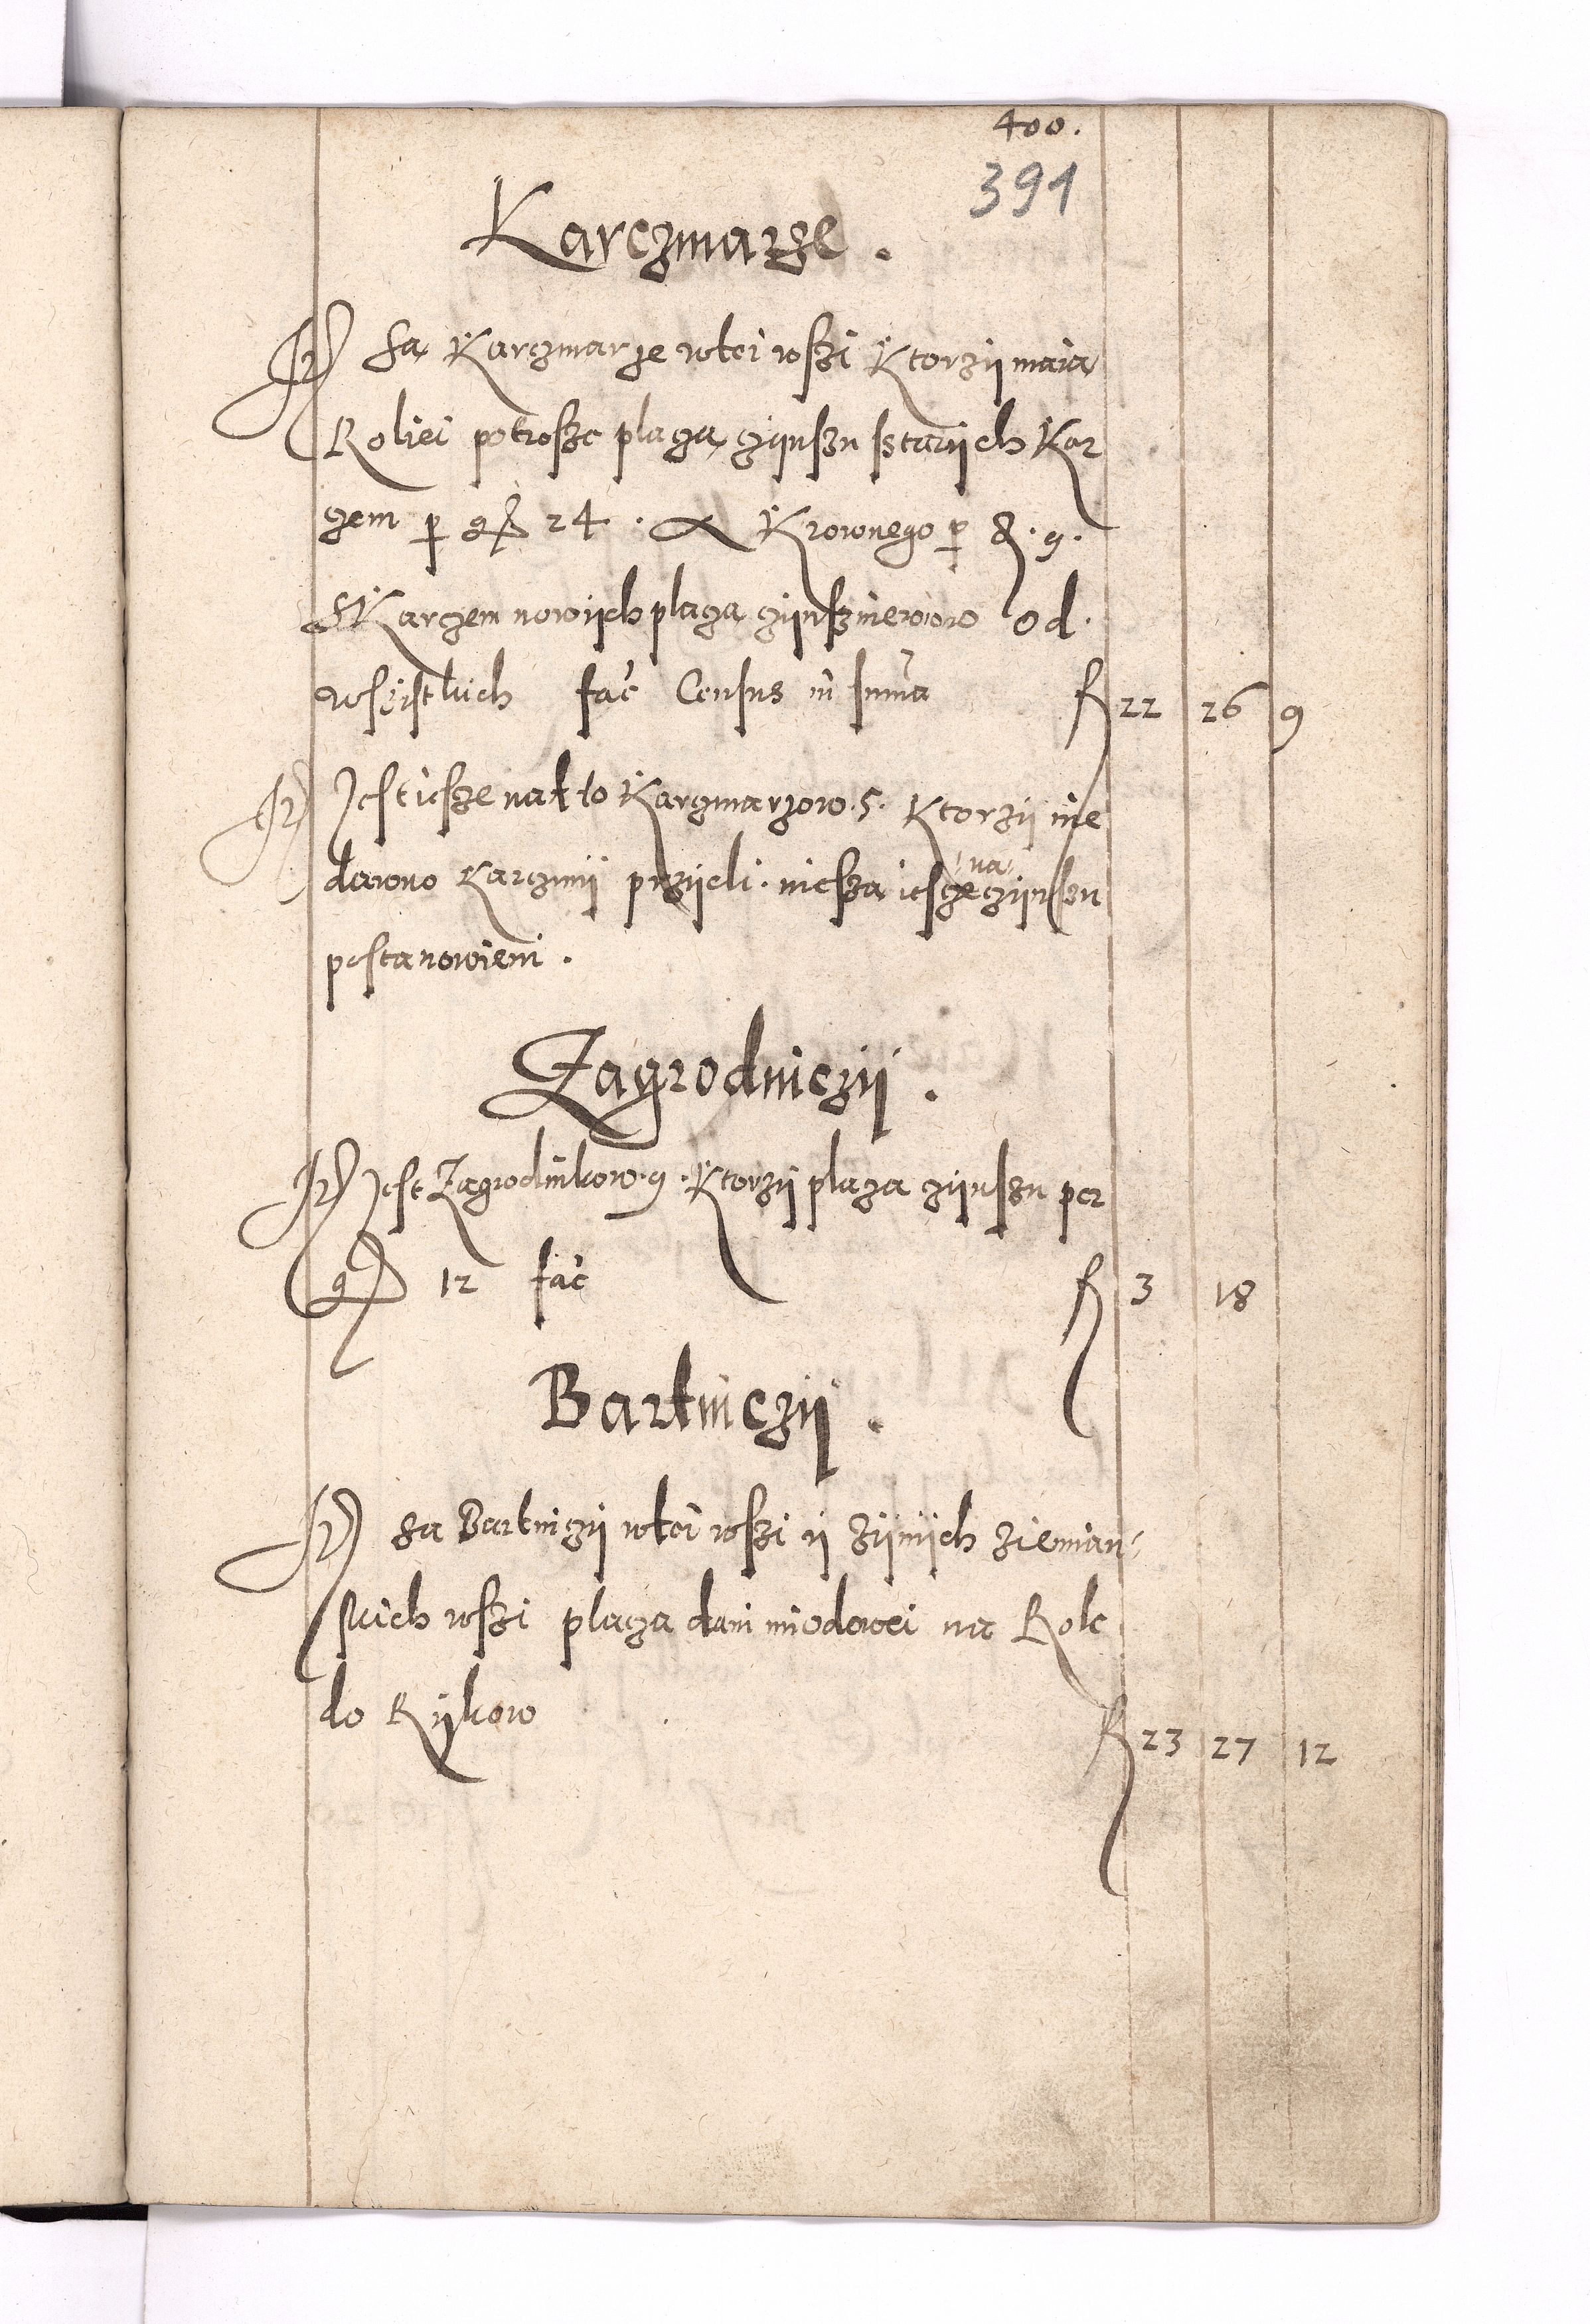 400.
391
Karczmarze.
It Sa Karczmarze wtei wszi Ktorzÿ maia
Roliei potrosze placza czÿnszu starÿch Kar
czem p gr 24. & Krownego p d. 9.
S Karczem nowÿch placza czÿnsz nierowno od
wszistkich fac Census in summa f 22 26 9
It Jest iesze nakto Karczmarzow. 5. Ktorzÿ nie
dawno Karczmÿ przÿeli. niesza iescze na czÿnszu
postanowieni.
Zagrodniczÿ.
It Jest Zagrodnikow. 9. Ktorzÿ placza czÿnszu per
gr 12 fac f 3 18
Bartniczÿ.
It Sa Bartniczÿ wtei wszi ÿ zÿnnÿch ziemian-
skich wszi placza dani miodowei na Role
do Rÿkow f 23 27 12